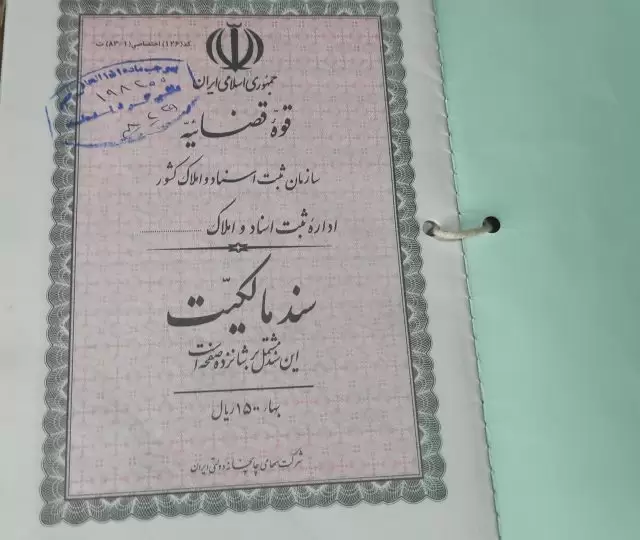 کد (۱۲۶) اختصاصی (۸۳۰۱) ت
جمهوری اسلامی ایران
قوّه قضائیّه
سازمان ثبت اسناد و املاک کشور
اداره ثبت اسناد و املاک ....................
سند مالکیّت
این سند مشتمل بر شانزده صفحه است
بهاء ۱۵۰۰ ریال
شرکت سهامی چاپخانه دولتی ایران